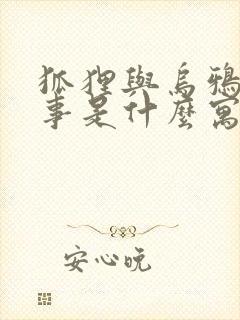 狐狸與烏鴉
事是什麼寓
安心吮